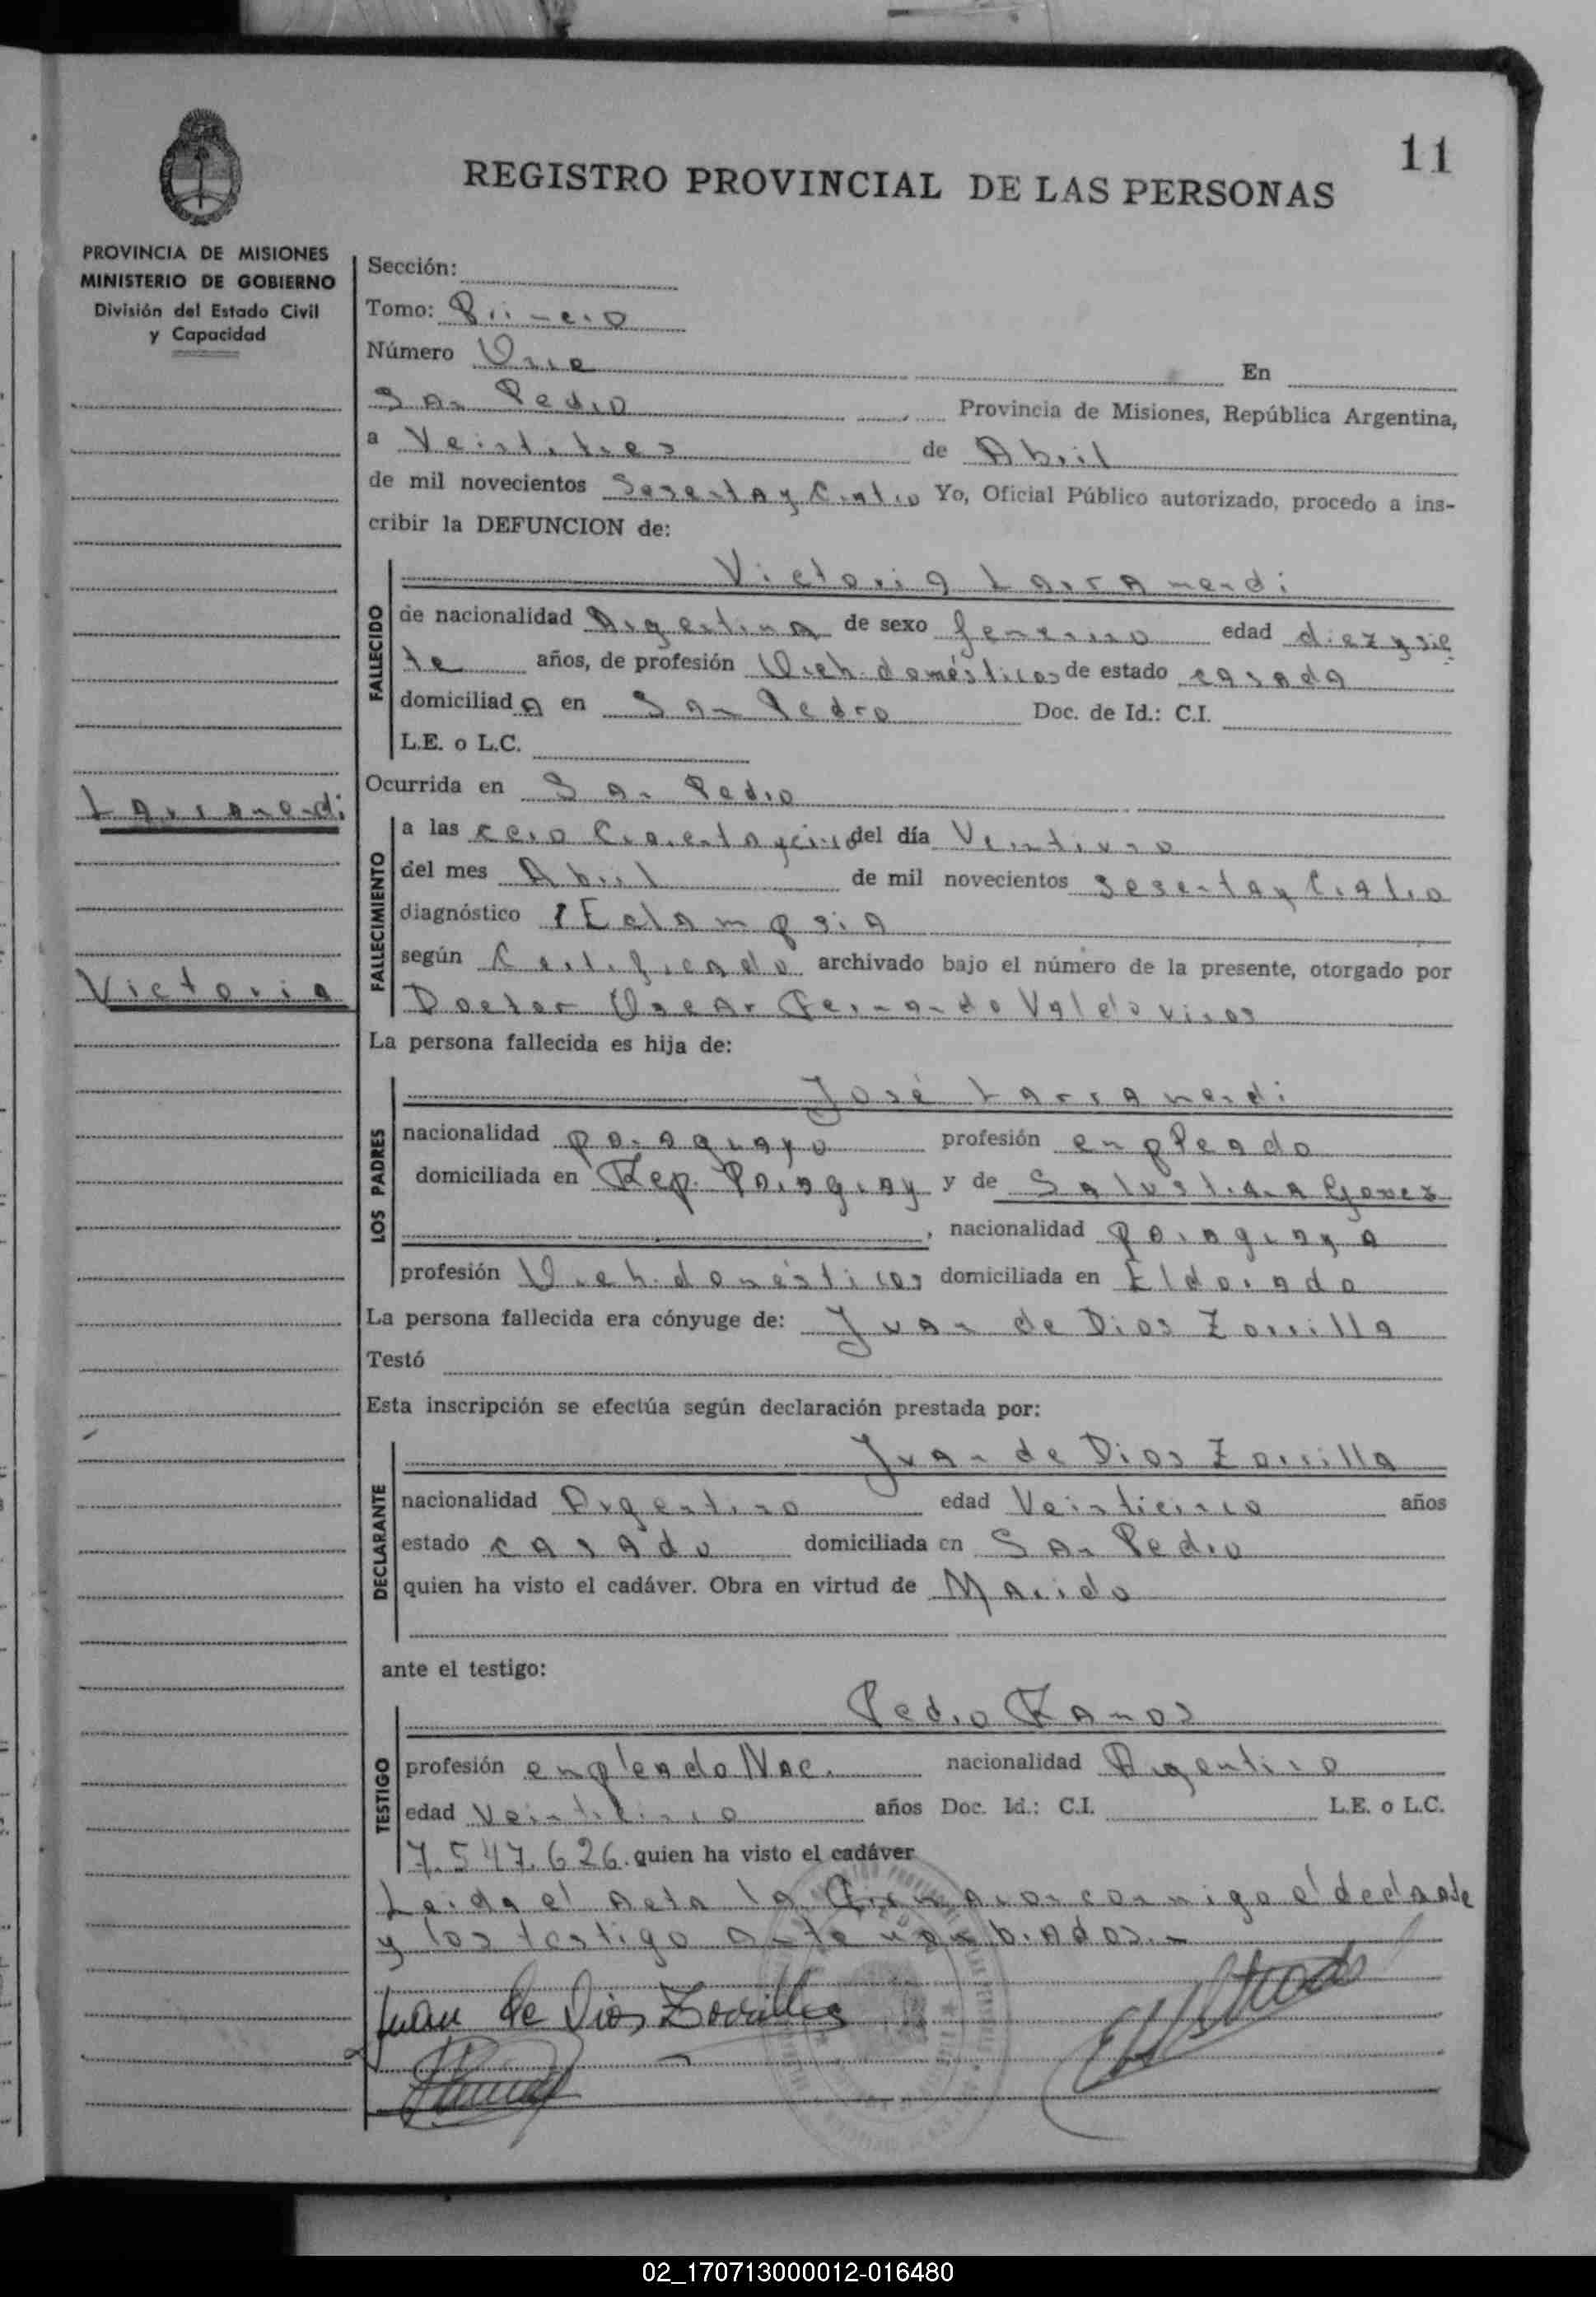 11
REGISTRO PROVINCIAL DE LAS PERSONAS
PROVINCIA DE MISIONES
MINISTERIO DE GOBIERNO
División del Estado Civil
y Capacidad
Larramendi
Victoria
Sección:
Tomo: Primero
Número Once En
San Pedro Provincia de Misiones, República Argentina,
a Veintitres de Abril
de mil novecientos Sesenta y Cuatro Yo, Oficial Público autorizado, procedo a ins-
cribir la DEFUNCION de:
Victoria Larramendi
FALLECIDO
de nacionalidad Argentina de sexo femenino edad diez y sie
te años, de profesión Queh. domésticos de estado casada
domiciliad a en San Pedro Doc. de Id.: C.I.
L.E. o L.C.
Ocurrida en San Pedro
FALLECIMIENTO
a las cero Cincuenta y cinco del día Veintiuno
del mes Abril de mil novecientos Sesenta y Cuatro
diagnóstico Eclampsia
según Certificado archivado bajo el número de la presente, otorgado por
Doctor Oscar Fernando Valdovinos
La persona fallecida es hija de:
LOS PADRES
José Larramendi
nacionalidad paraguayo profesión empleado
domiciliada en Rep. Paraguay y de Salustiana Gomez
, nacionalidad paraguaya
profesión Queh. domésticos domiciliada en Eldorado
La persona fallecida era cónyuge de: Juan de Dios Zorrilla
Testó
Esta inscripción se efectúa según declaración prestada por:
DECLARANTE
Juan de Dios Zorrilla
nacionalidad Argentino edad Veinticinco años
estado casado domiciliada en San Pedro
quien ha visto el cadáver. Obra en virtud de Marido
ante el testigo:
TESTIGO
Pedro Ramos
profesión empleado Nac. nacionalidad Argentino
edad Veinticinco años Doc. Id.: C.I. L.E. o L.C.
7.547.626. quien ha visto el cadáver
Leida el acta la firman con migo el declarante
y los testigo ante nombrados.-
Juan de Dios Zorrilla
02_170713000012-016480